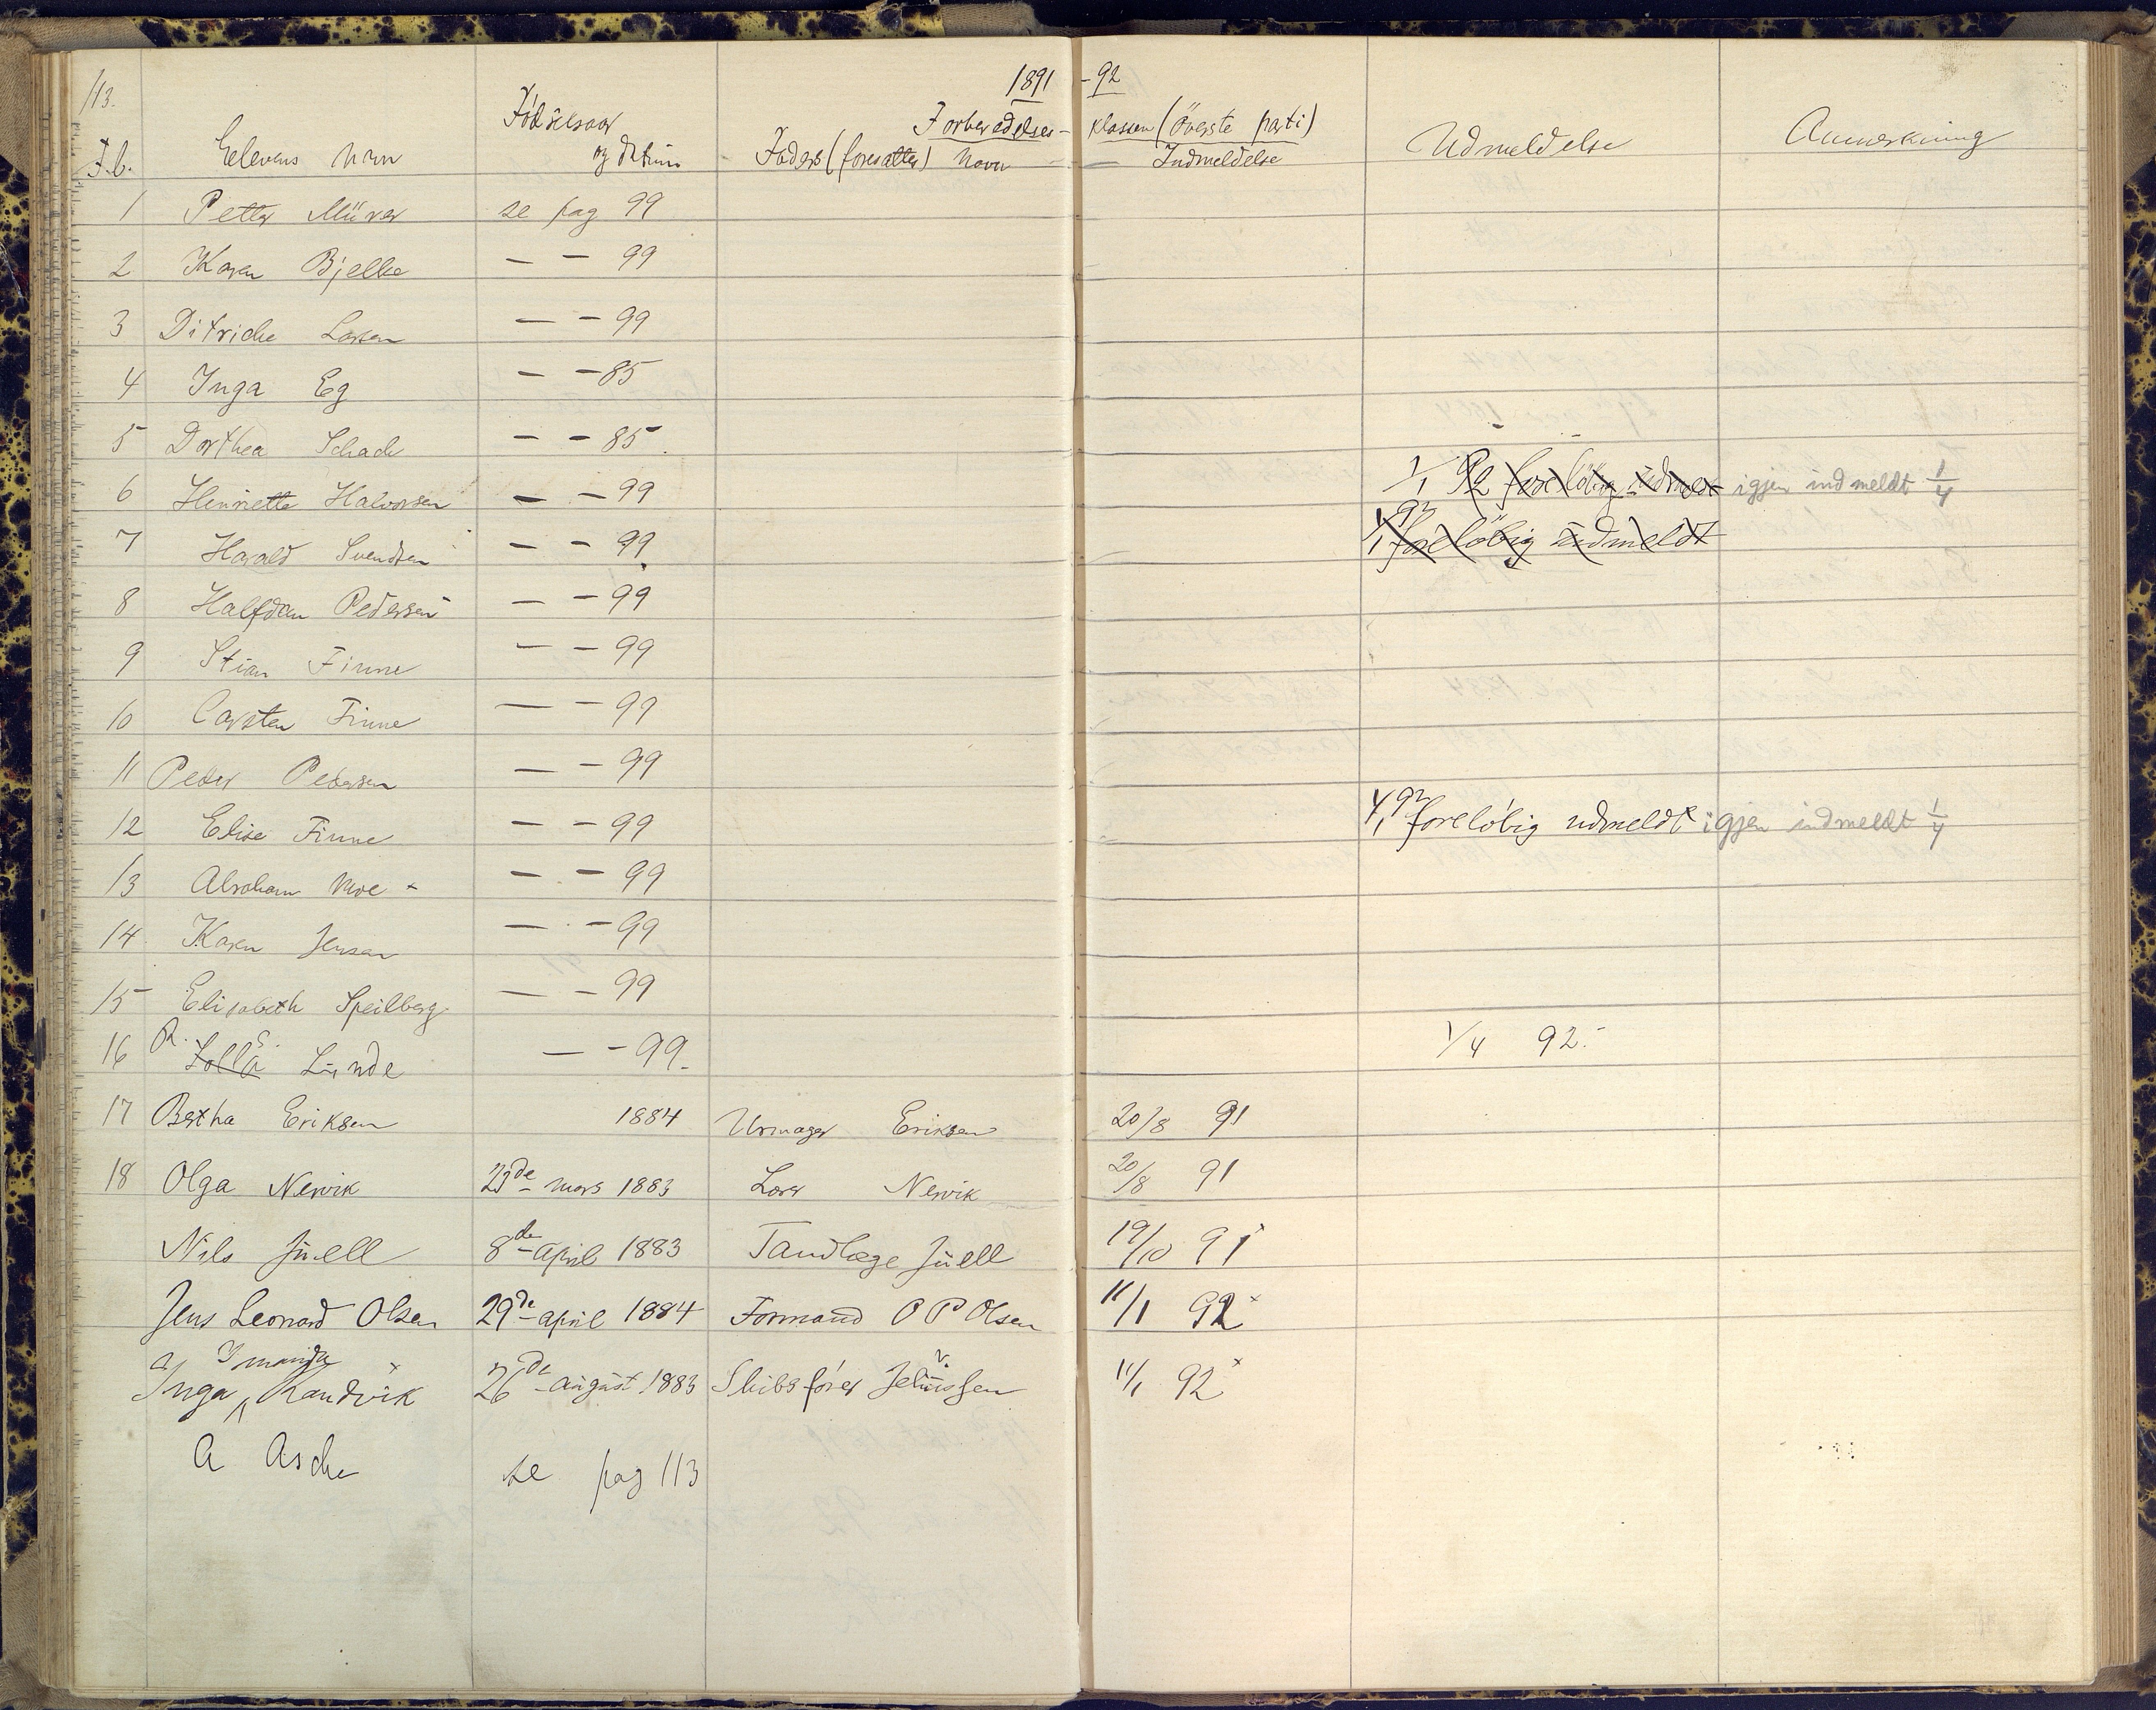 113.
1891 - 92
Forberedelses- klassen (överste parti)
L.b. Elevens navn Födselsaar og datum Faders (foresattes) navn Indmeldelse Udmeldelse Anmerkning
1 Petter Mürer se pag 99
2 Karen Bjelke — — 99
3 Ditriche Larsen — — 99
4 Inga Eg — — 85
5 Dorthea Schack — — 85
6 Henriette Halvorsen — — 99 1/1 92 foreløbig udmeldt igjen indmeldt 1/4
7 Harald Svendsen — — 99 1/1 92 foreløbig udmeldt
8 Halfdan Pedersen — — 99
9 Stian Finne — — 99
10 Carsten Finne — — 99
11 Peder Pedersen — — 99
12 Elise Finne — — 99 1/1 92 foreløbig udmeldt igjen indmeldt 1/4
13 Abraham Moe — — 99
14 Karen Jensen — — 99
15 Elisabeth Speilberg — — 99
16 Lolla Lunde — — 99 1/4 92
17 Bertha Eriksen 1884 Urmager Eriksen 20/8 91
18 Olga Nervik 23de mars 1883 Lærer Nervik 20/8 91
Nils Juell 8de april 1883 Tandlæge Juell 19/10 91
Jens Leonard Olsen 29de april 1884 Formand O P Olsen 11/1 92
Inga Randvik 26de august 1883 Skibsfører 11/1 92
A Asche se pag 113